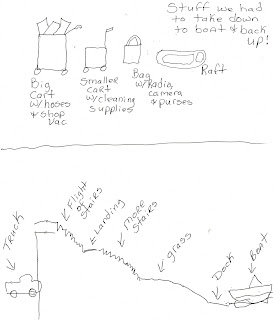 Stuff we had
to take down
to boat & back
up!
Big
Cart
w/hoses
& shop
vac
Smaller
Cart
w/cleaning
supplies
Bag
w/Radio,
camera
& purses
Raft
Truck
Flight
of
Stairs
Landing
More
Stairs
grass
Dock
Boat